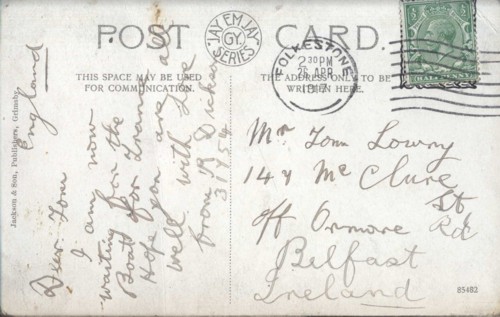 POST CARD.
"JAY EM JAY"
GY.
SERIES
THIS SPACE MAY BE USED
FOR COMMUNICATION.
THE ADDRESS ONLY TO BE
WRITTEN HERE.
FOLKESTONE
2 30 PM
26 APR
HALFPENNY
Jackson & Son, Publishers, Grimsby
England
Dear Tom
I am now
waiting for the
Boat for France
Hope you are all
well with love
from R Dickey
31954
Mr Tom Lowry
147 McClure
St
off Ormore Rd
Belfast
Ireland
85482